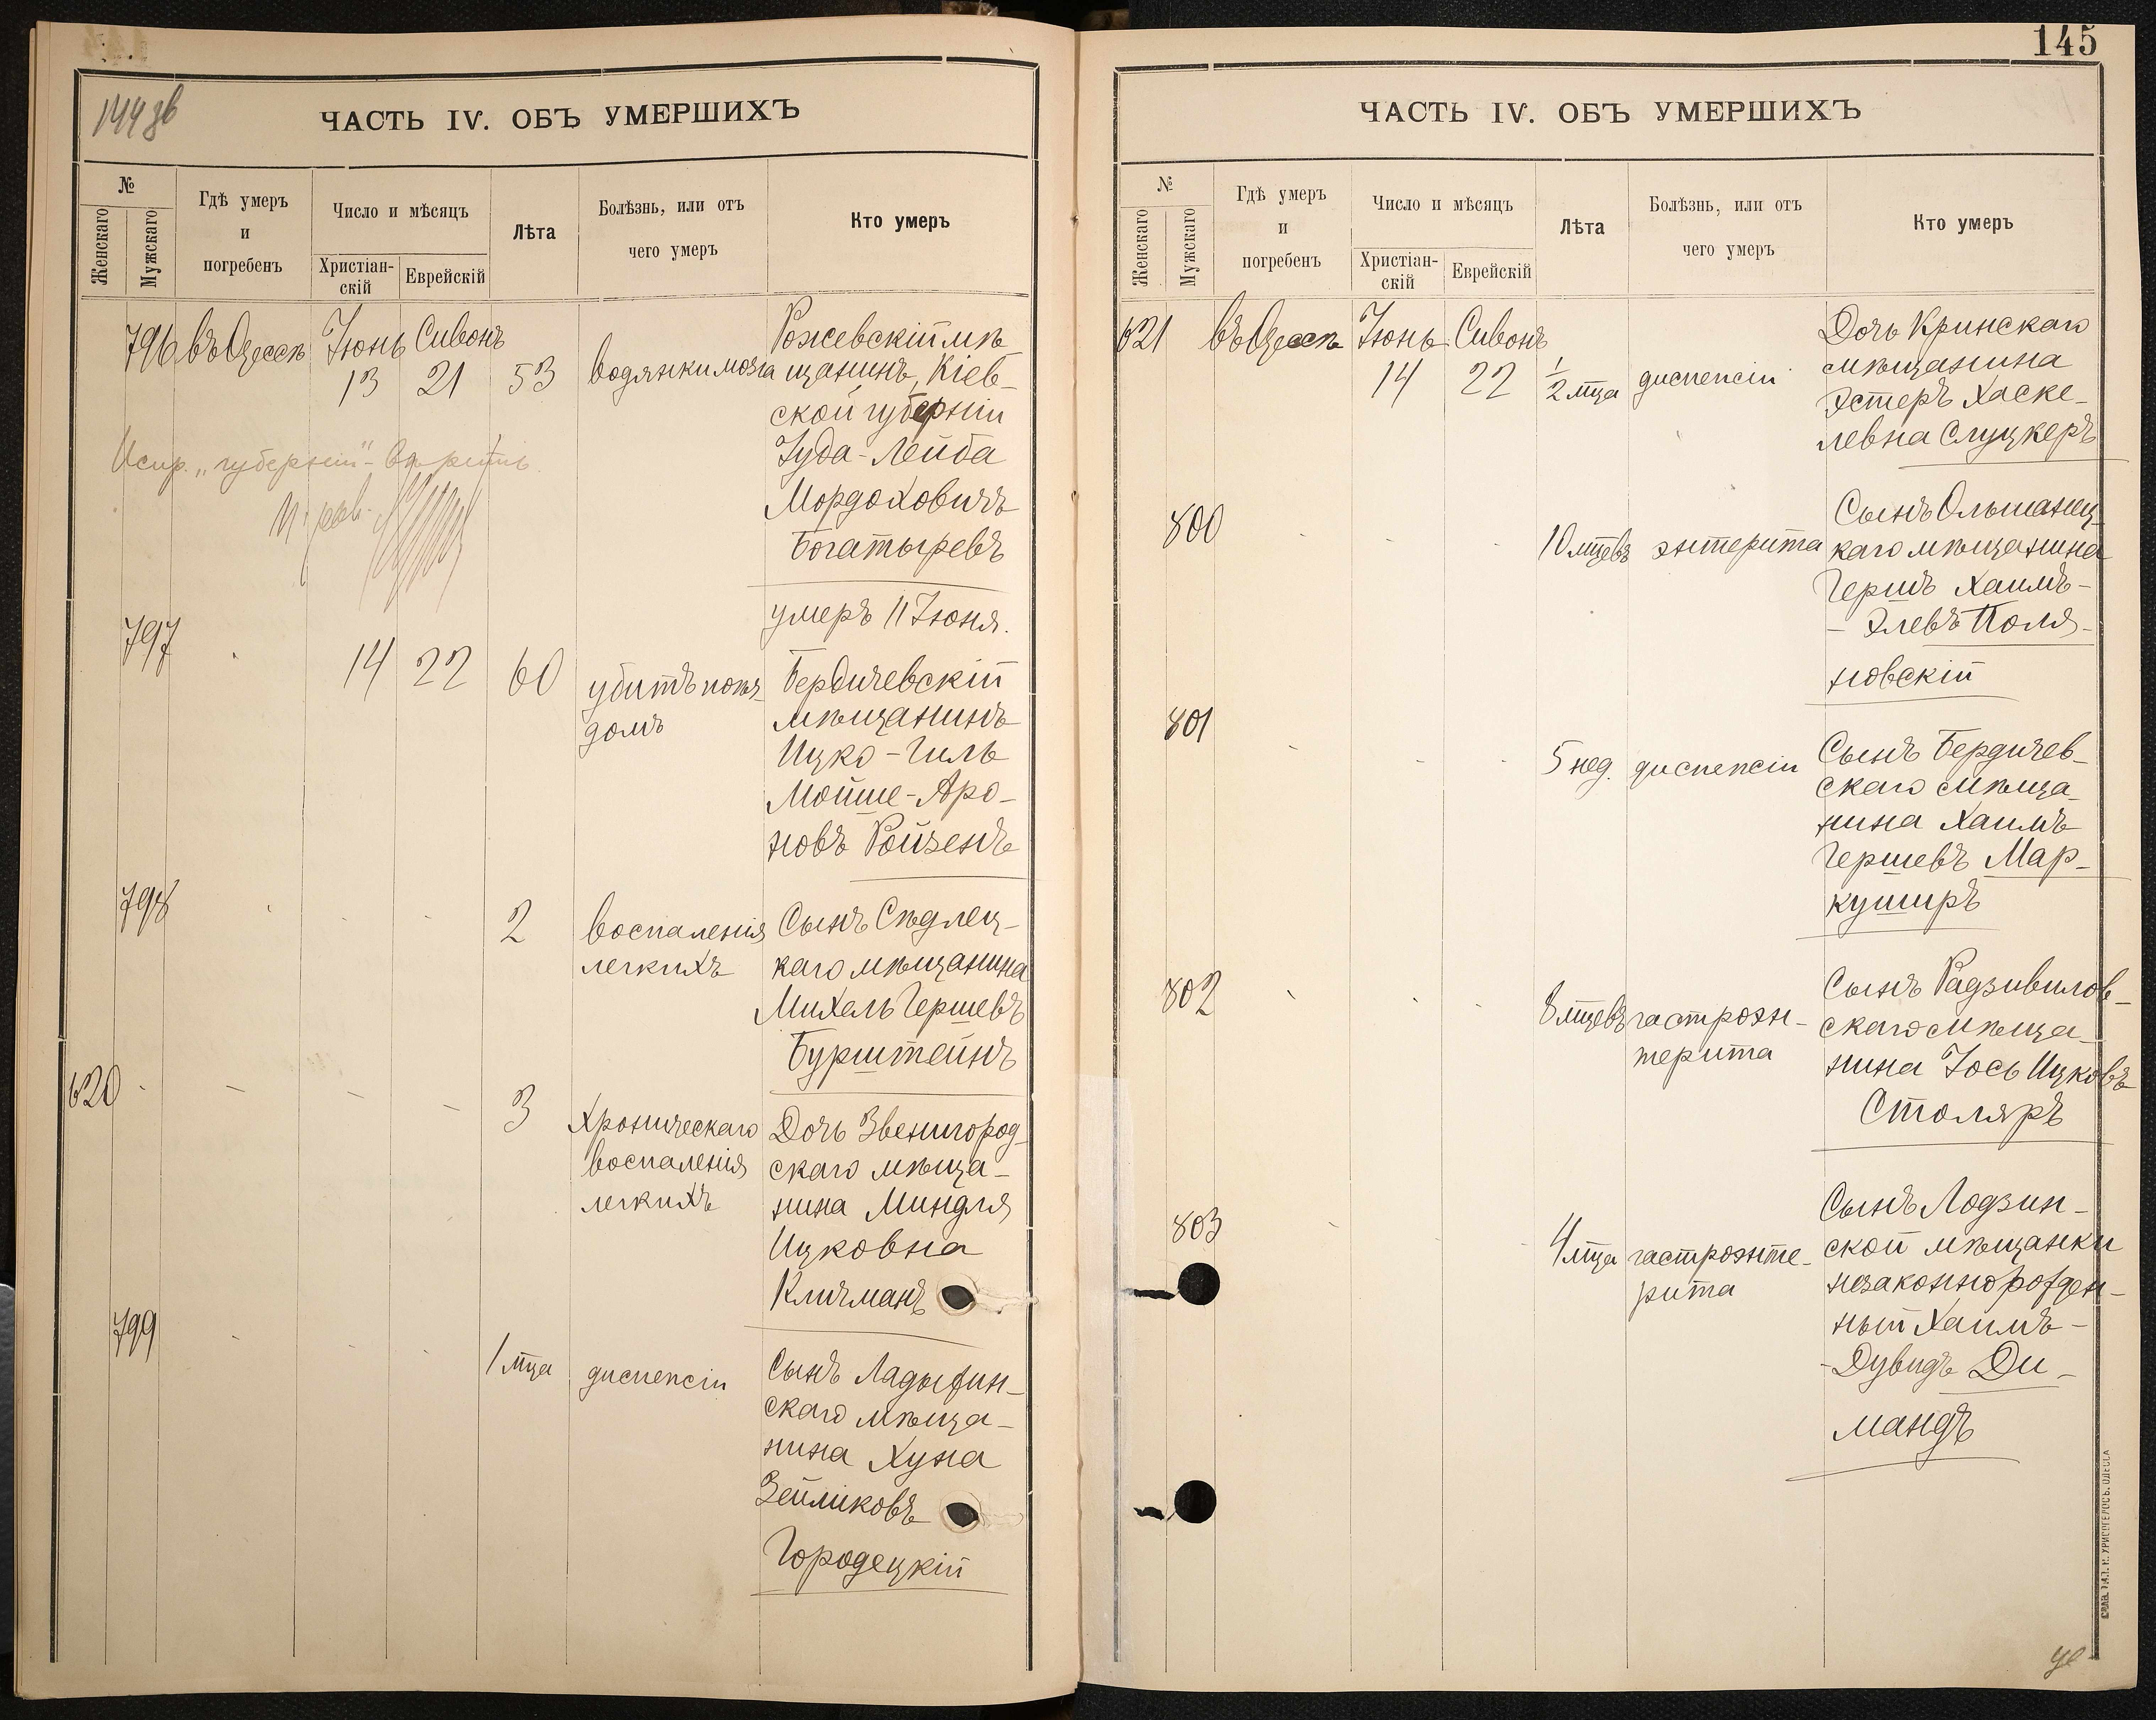 144 зв
ЧАСТЬ IV. ОБЪ УМЕРШИХЪ
№
Женскаго
Мужскаго
Гдѣ умеръ
и
погребенъ
Число и мѣсяцъ
Христіан-
скій
Еврейскій
Лѣта
Болѣзнь, или отъ
чего умеръ
Кто умеръ
796 въ Одессѣ Іюнь Сивонъ
13 21 53 водянки мозга
Рожевскій мѣ
щанинъ, Кіев-
ской губерніи
Іуда-Лейба
Мордоховичъ
Богатыревъ
умеръ 11 Іюня.
Испр. „губерніи"- вѣрить.
797 14 22 60 убитъ поѣз-
домъ
Бердичевскій
мѣщанинъ
Ицко-Гиль
Мойше-Аро-
новъ Ройзенъ
798 2 воспаленія
легкихъ
Сынъ Сѣдлец-
каго мѣщанина
Михель Гершевъ
Бурштейнъ
620 3 Хроническаго
воспаленія
легкихъ
Дочь Звенигород-
скаго мѣща-
нина Миндля
Ицковна
Кличманъ
799 1 мца диспепсіи
Сынъ Ладыжин-
скаго мѣща-
нина Хуна
Зейликовъ
Городецкій
145
ЧАСТЬ IV. ОБЪ УМЕРШИХЪ
№
Женскаго
Мужскаго
Гдѣ умеръ
и
погребенъ
Число и мѣсяцъ
Христіан-
скій
Еврейскій
Лѣта
Болѣзнь, или отъ
чего умеръ
Кто умеръ
621 въ Одессѣ Іюнь Сивонъ
14 22 1/2 мца диспепсіи
Дочь Кринскаго
мѣщанина
Эстеръ Хаске-
левна Слуцкеръ
800 10 мцевъ энтерита
Сынъ Ольшанец-
каго мѣщанина
Гершъ Хаимъ-
- Элевъ Поля-
новскій
801 5 нед. диспепсіи
Сынъ Бердичев-
скаго мѣща-
нина Хаимъ
Гершевъ Мар-
куширъ
802 8 мцевъ гастроэн-
терита
Сынъ Радзивилов-
скаго мѣща-
нина Іось Ицковъ
Столяръ
803 4 мца гастроэнте-
рита
Сынъ Лодзин-
ской мѣщанки
незаконнорожден-
ный Хаимъ-
-Дувидъ Ди-
мандъ